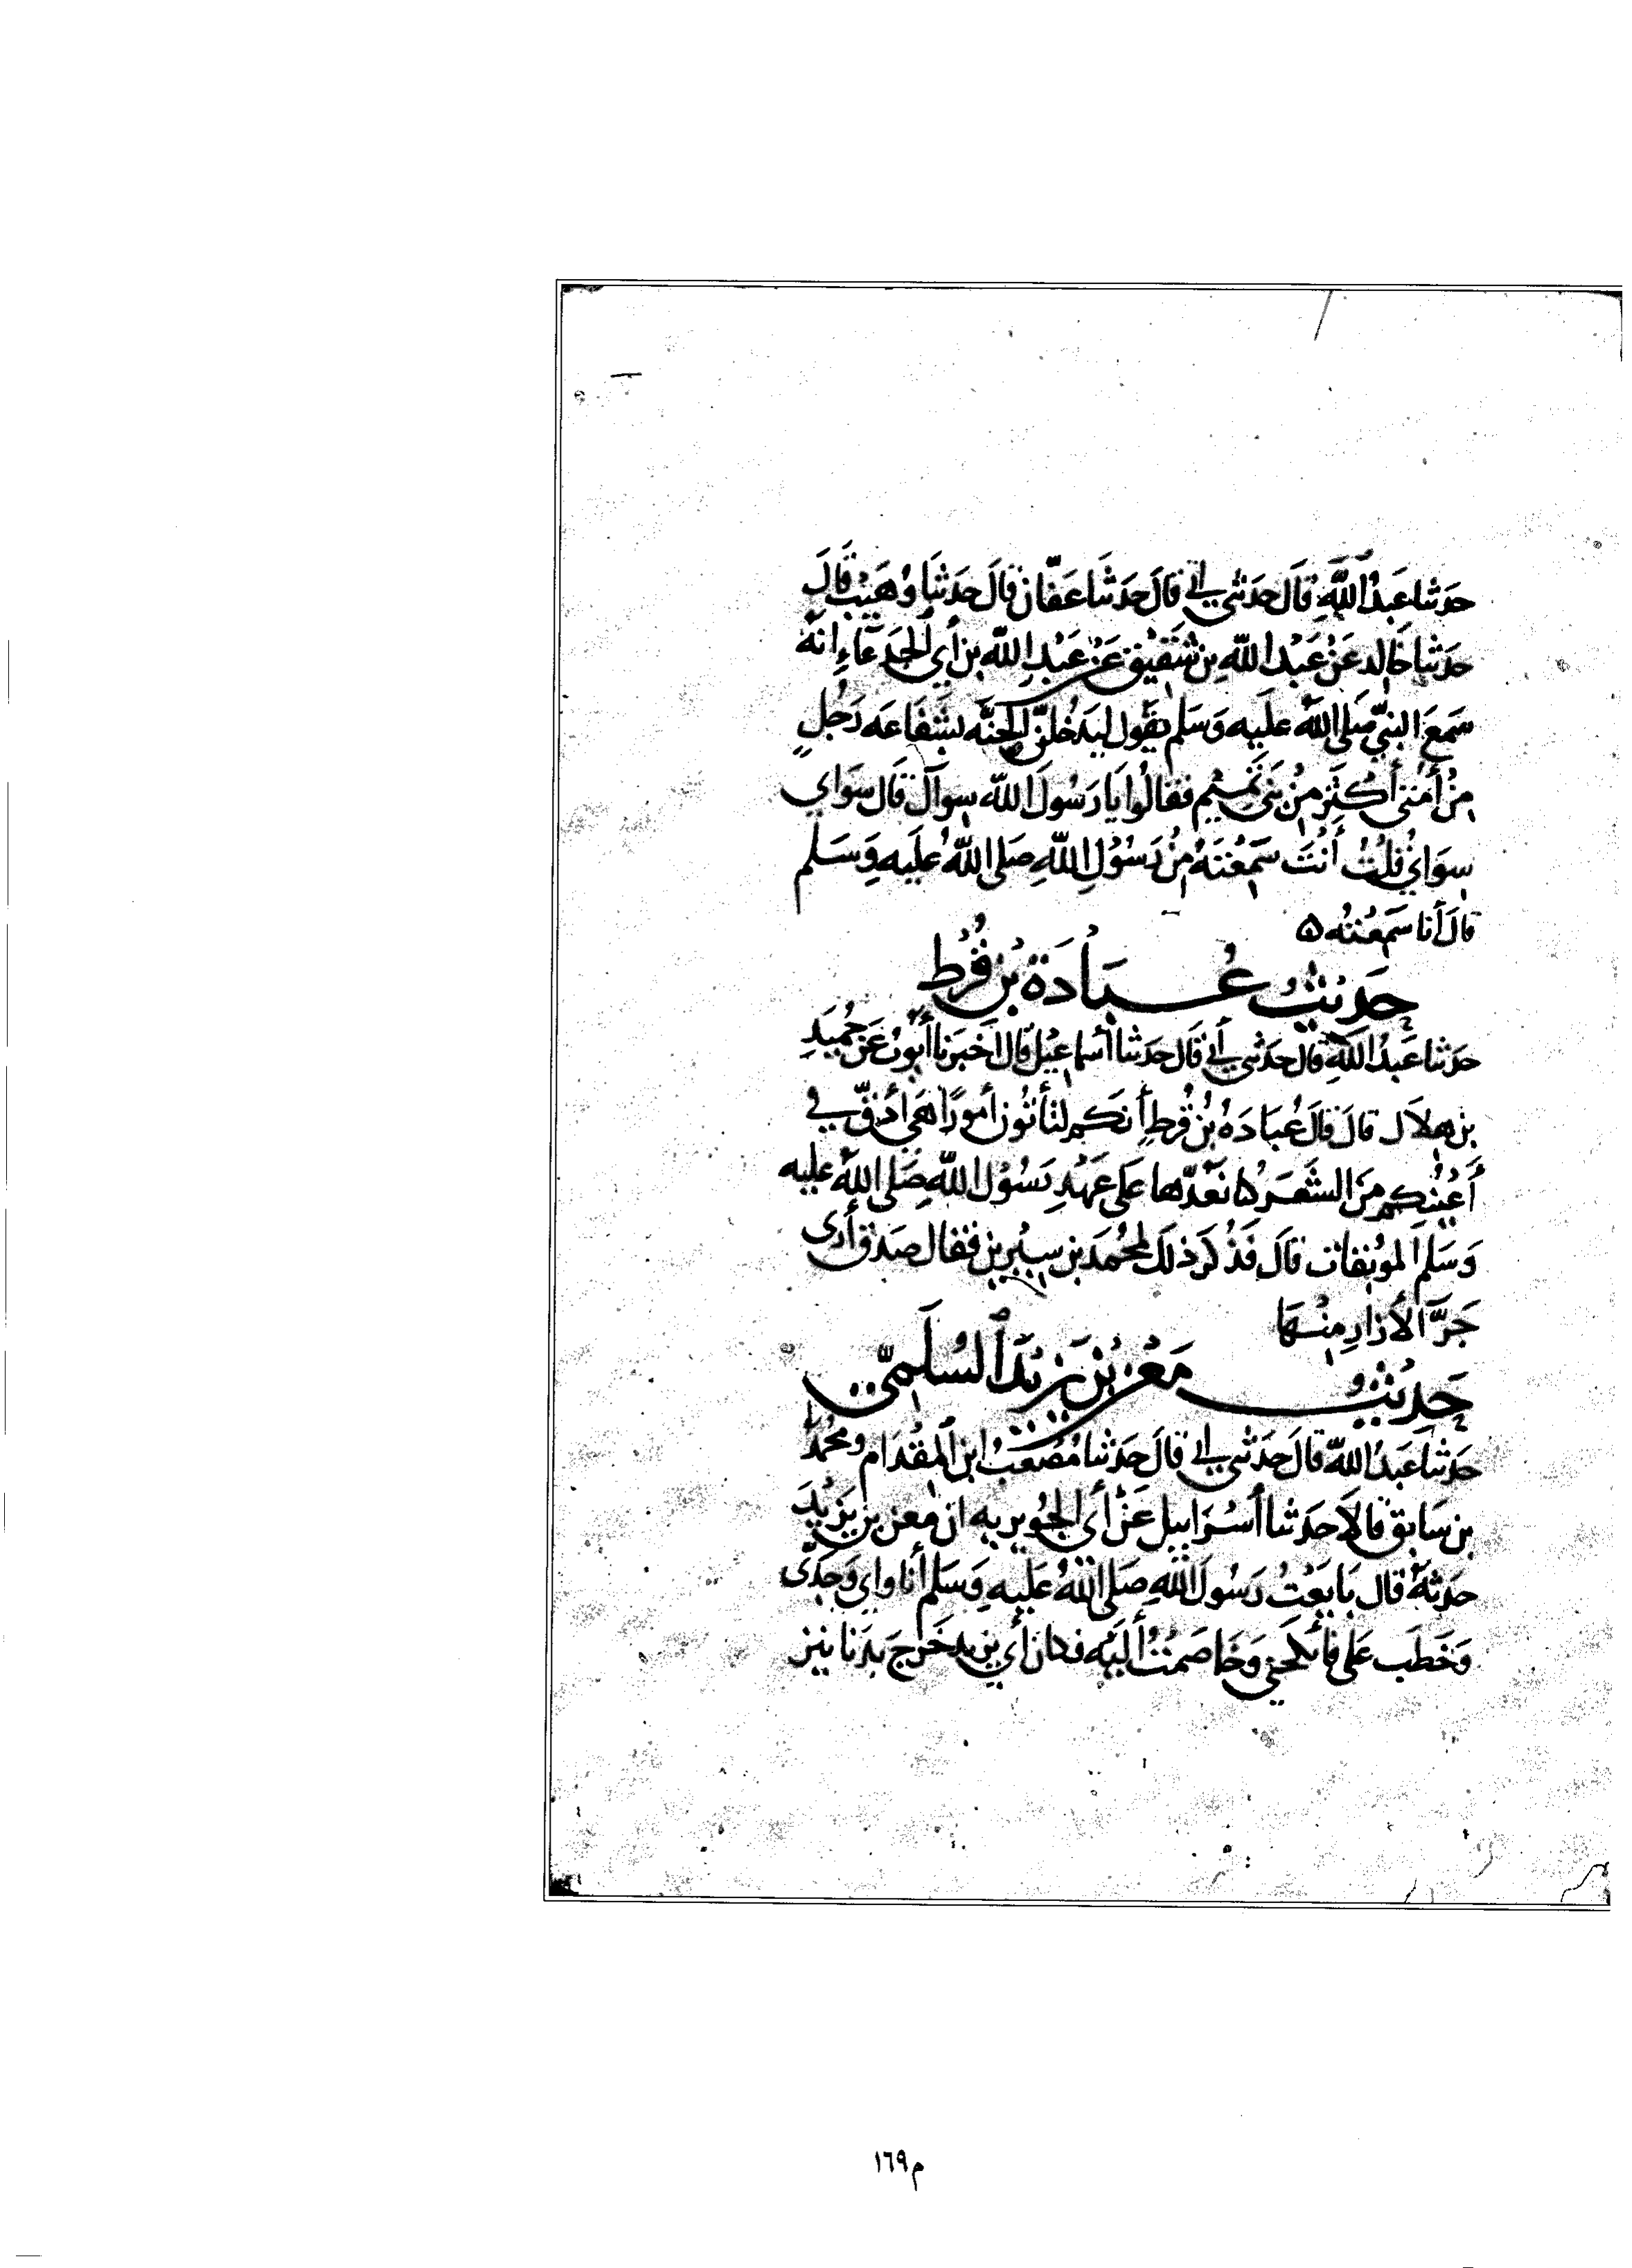 حَدثنا عَبدُ اللَّهِ قَالَ حَدثني أبي قَالَ حَدثنا عَفّان قَالَ حَدثنا وُهَيْبٌ قَالَ
حَدثنا خَالِد عَنْ عَبْد اللَّه بِن شَقِيْقٍ عَنْ عَبْدِ اللَّه بن أَبي الجَدْعَاءِ انَّهُ
سَمِعَ النبيَّ صَلى اللَّهُ عَلَيه وَسَلم يَقُول ليَدْخُلَنَّ الجنَّه بشَفَاعَه رَجُلٍ
مِنْ أُمَتي أَكثَرُ مِنْ بَني تَمْيِم فقالُوا يَا رَسُولَ اللَّه سِوَاكَ قَالَ سوَاي
سِوَايَ قلْتُ أَنْتَ سَمِعْتَهُ مِنْ رَسُوْلِ اللَّهِ صَلى اللَّهُ عَليه وَسَلم
قَالَ أَنا سَمِعْتُه ٥
حَدِيْثُ عُبَادَة بْن قُرْط
حَدثنا عَبْدُ اللَّهِ قَالَ حَدثني أَبي قَالَ حَدثنا أسماعِيْل قَالَ أَخبَرَنا أَيُّوبُ عَنْ حُمَيدِ
بن هِلَال قَالَ قَالَ عُبَادَهُ بْنُ قُرْطٍ أِنكم لتَأتُون أُمورًا هيَ أَدَقّ في
أَعْيُنِكم مِنَ الشَعَر كنا نَعُدّها عَلى عَهْدِ رَسُوْل اللَّهِ صَلى اللَّهُ عليه
وَسَلم المُوبقات قَالَ فَذُكرَ ذلكَ لمُحمَد بن سِيْرين فَقال صَدق أَرى
جَرَّ الأزارِ مِنْهَا
حَدِيْثُ مَعْن بْن يَزِيْدَ السُلَمِيّ
حَدثنا عَبدُ اللَّه قَالَ حَدَثني أبي قَالَ حَدثنا مُصْعَبُ ابن المِقْدَام ومحمدُ
بن سَابق قَالَا حَدثنا أسْرَاييل عَنْ أَبي الجُوَيريه ان مَعن بن يَزيْدَ
حَدثهُ قَال بَايَعْتُ رَسُولَ اللَّهِ صَلى اللَّهُ عَليهِ وَسَلم أَنا وأبي وَجَدّى
وَخَطَب عَلي فأنكحَني وَخَاصَمْتُ أليْه فكان أَبي يزيد خَرَجَ بدَنانير
م١٦٩